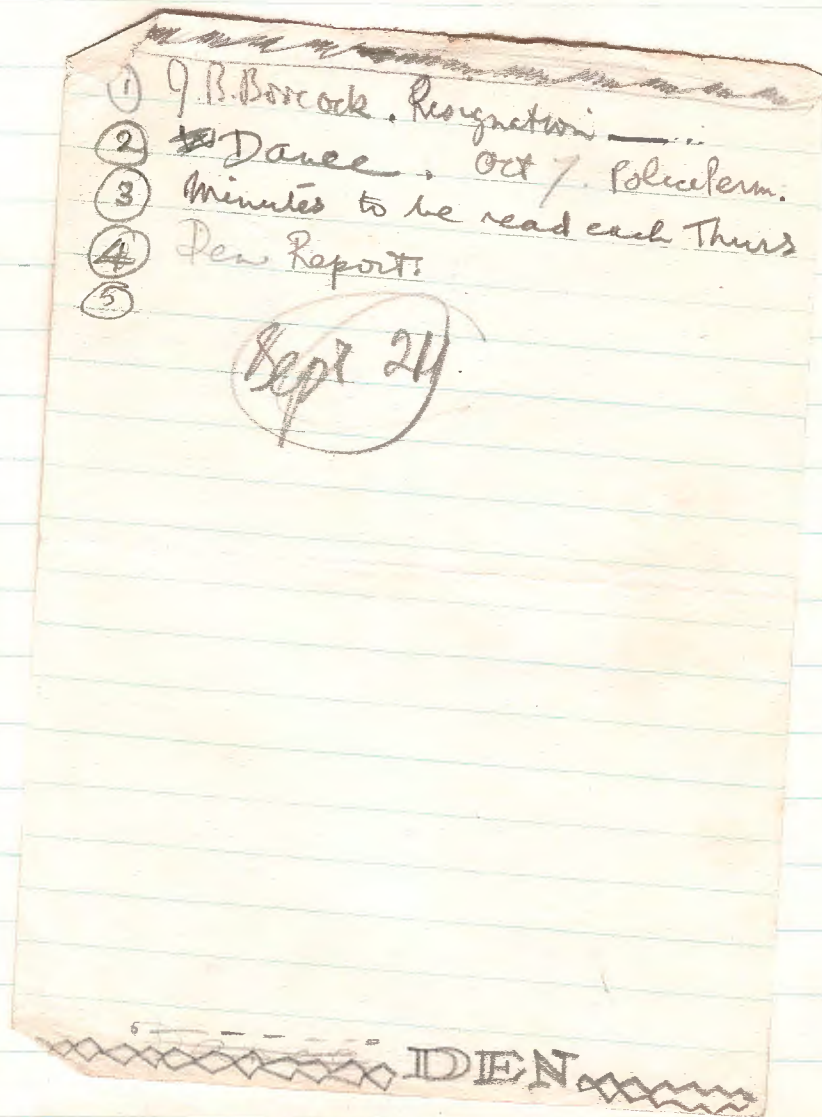 ① J.B. Boocock. Resignation —
② Dance. Oct 7. Police Perm.
③ Minutes to be read each Thurs
④ Den Report.
⑤
Sept 24
6
DEN